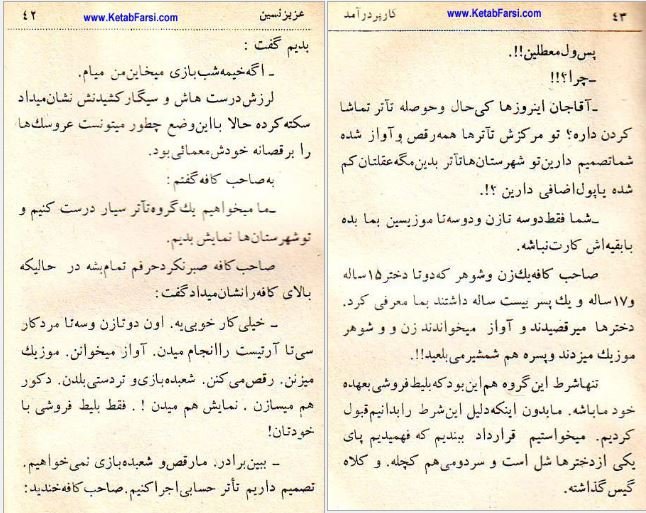 www.KetabFarsi.com
٤٢ عزیزنسین
بدیم گفت :
ـ اگه خیمه شب بازی میخاین من میام.
لرزش درست هاش و سیگار کشیدنش نشان میداد
سکته کرده حالا با این وضع چطور میتونست عروسك ها
را برقصانه خودش معمائی بود.
به صاحب کافه گفتم :
ـ ما میخواهیم یك گروه تآتر سیار درست کنیم و
تو شهرستان ها نمایش بدیم.
صاحب کافه صبر نکرد حرفم تمام بشه در حالیکه
بالای کافه را نشان میداد گفت :
ـ خیلی کار خوبی یه. اون دو تا زن و سه تا مرد کار
سی تا آرتیست را انجام میدن. آواز میخوانن. موزیك
میزنن. رقص می کنن. شعبده بازی و تردستی بلدن. دکور
هم میسازن . نمایش هم میدن ! . فقط بلیط فروشی با
خودتان!
ـ ببین برادر. ما رقص و شعبده بازی نمی خواهیم.
تصمیم داریم تأتر حسابی اجرا کنیم. صاحب کافه خندید :
www.KetabFarsi.com
کارپردرآمد ٤٣
پس ول معطلین!!.
ـ چرا؟!!
ـ آقاجان این روزها کی حال و حوصله تآتر تماشا
کردن داره؟ تو مرکزش تآترها همه رقص و آواز شده
شما تصمیم دارین تو شهرستان ها تآتر بدین مگه عقلتان کم
شده یا پول اضافی دارین ؟!.
ـ شما فقط دوسه تا زن و دوسه تا موزیسین بما بده
با بقیه اش کارت نباشه.
صاحب کافه یك زن و شوهر که دو تا دختر ١٥ ساله
و ١٧ ساله و یك پسر بیست ساله داشتند بما معرفی کرد.
دخترها میرقصیدند و آواز میخواندند زن و و شوهر
موزیك میزدند و پسره هم شمشیر می بلعید!!.
تنها شرط این گروه هم این بود که بلیط فروشی بعهده
خود ما باشه. ما بدون اینکه دلیل این شرط را بدانیم قبول
کردیم. میخواستیم قرارداد ببندیم که فهمیدیم پای
یکی از دخترها شل است و سردومی هم کچله. و کلاه
گیس گذاشته.